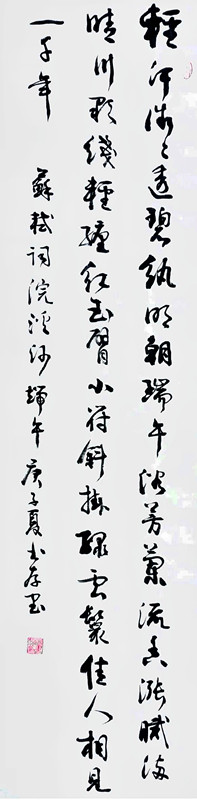 輕汗微々透碧紈明朝端午浴芳蘭流香漲膩滿
晴川彩綫輕纏紅玉臂小符斜掛綠雲鬟佳人相見
一千年 蘇軾詞浣溪沙端午 庚子夏